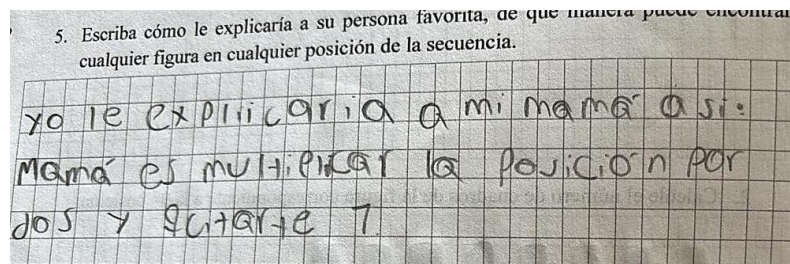 5. Escriba cómo le explicaría a su persona favorita, de que manera puede encontrar
cualquier figura en cualquier posición de la secuencia.
yo le explicaria a mi mamá asi:
Mamá es multiplicar la posición por
dos y quitarle 7